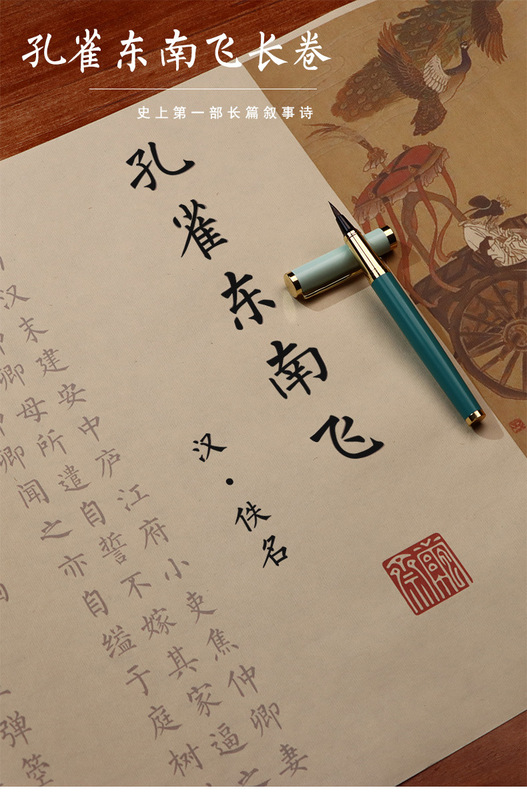 孔雀东南飞长卷
史上第一部长篇叙事诗
孔雀东南飞
汉·佚名
汉末建安中庐江府小吏焦仲卿妻
卿母所遣自誓不嫁其家逼之
卿闻之亦自缢于庭树
弹箜